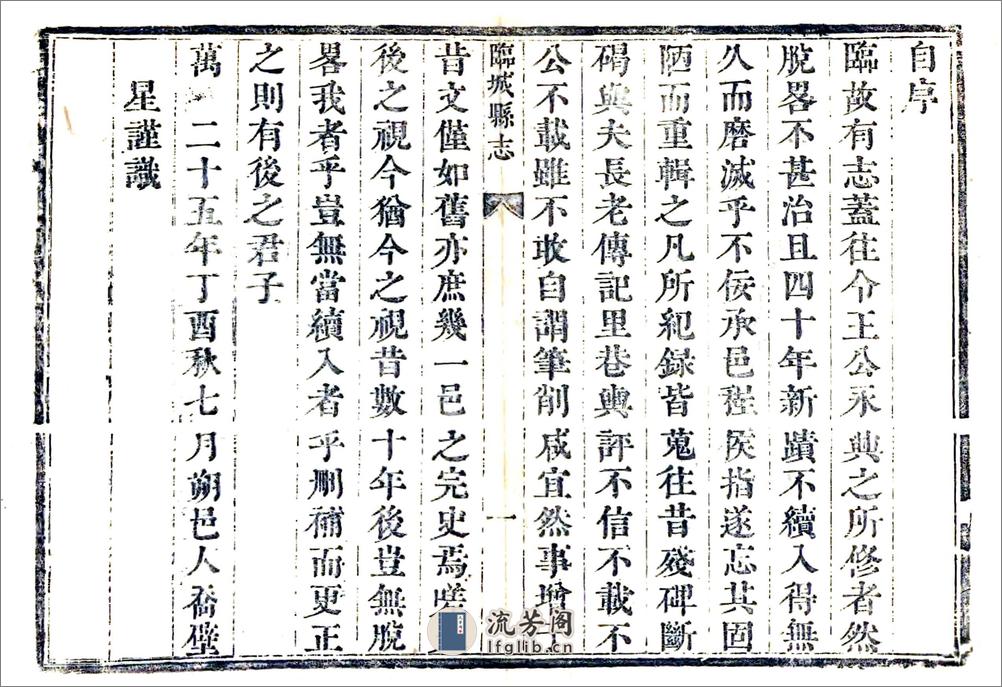 自序
臨故有志蓋往令王公永典之所修者然
脫畧不甚治且四十年新蹟不續入得無
久而磨滅乎不佞承邑程侯指遂忘其固
陋而重輯之凡所紀録皆蒐往昔殘碑斷
碣與夫長老傳記里巷輿評不信不載不
公不載雖不敢自謂筆削咸宜然事增
臨城縣志
一
昔文僅如舊亦庶幾一邑之完史焉嗟
後之視今猶今之視昔數十年後豈無脫
畧我者乎豈無當續入者乎刪補而更正
之則有後之君子
萬 二十五年丁酉秋七月朔邑人喬壁
星謹識
流芳阁
lfglib.cn